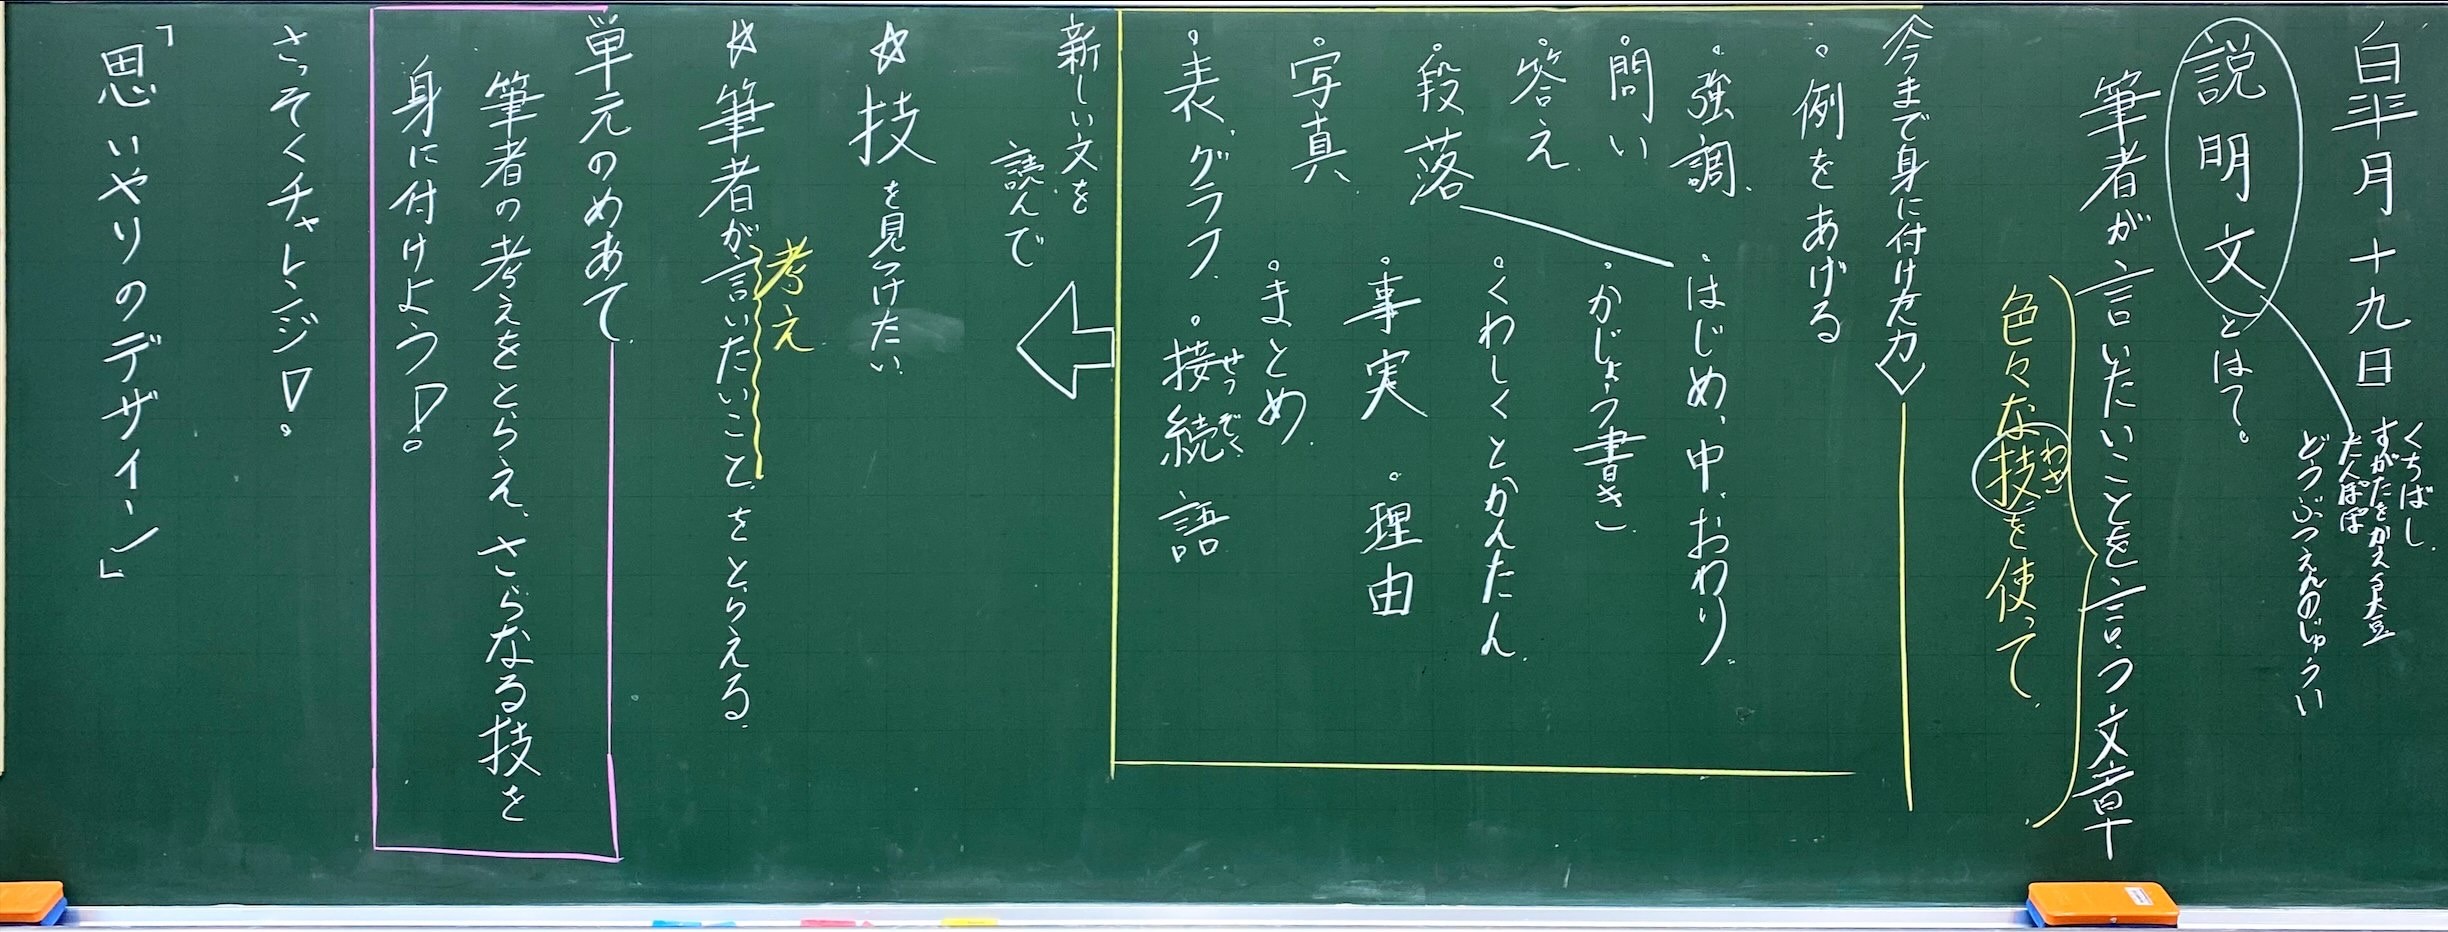 月十九日
くちばし
すがたをかえる大豆
たんぽぽ
どうぶつえんのじゅうい
説明文とはて。
筆者が言いたいことを言う文章
色々な技を使って
わざ
今まで身に付けた力
・例をあげる
・強調
・はじめ、中、おわり
・問い
・かじょう書き
・答え
・くわしくとかんたん
・段落
・事実
・理由
・写真
・まとめ
・表、グラフ
・接続語
せつぞく
新しい文を
読んで
☆技を見つけたい
考え
☆筆者が言いたいことをとらえる
単元のめあて
筆者の考えをとらえ、さらなる技を
身に付けよう!
さっそくチャレンジ!
「思いやりのデザイン」